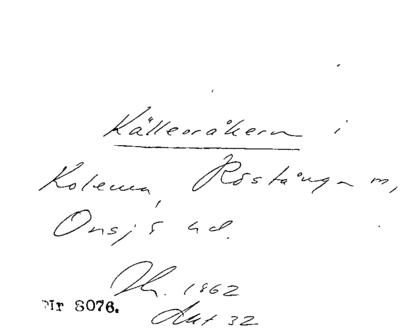 Källeoråkern i
Kolema, Röstånga m,
Onsjö hd.
1862
Nr 8076.
Akt 32